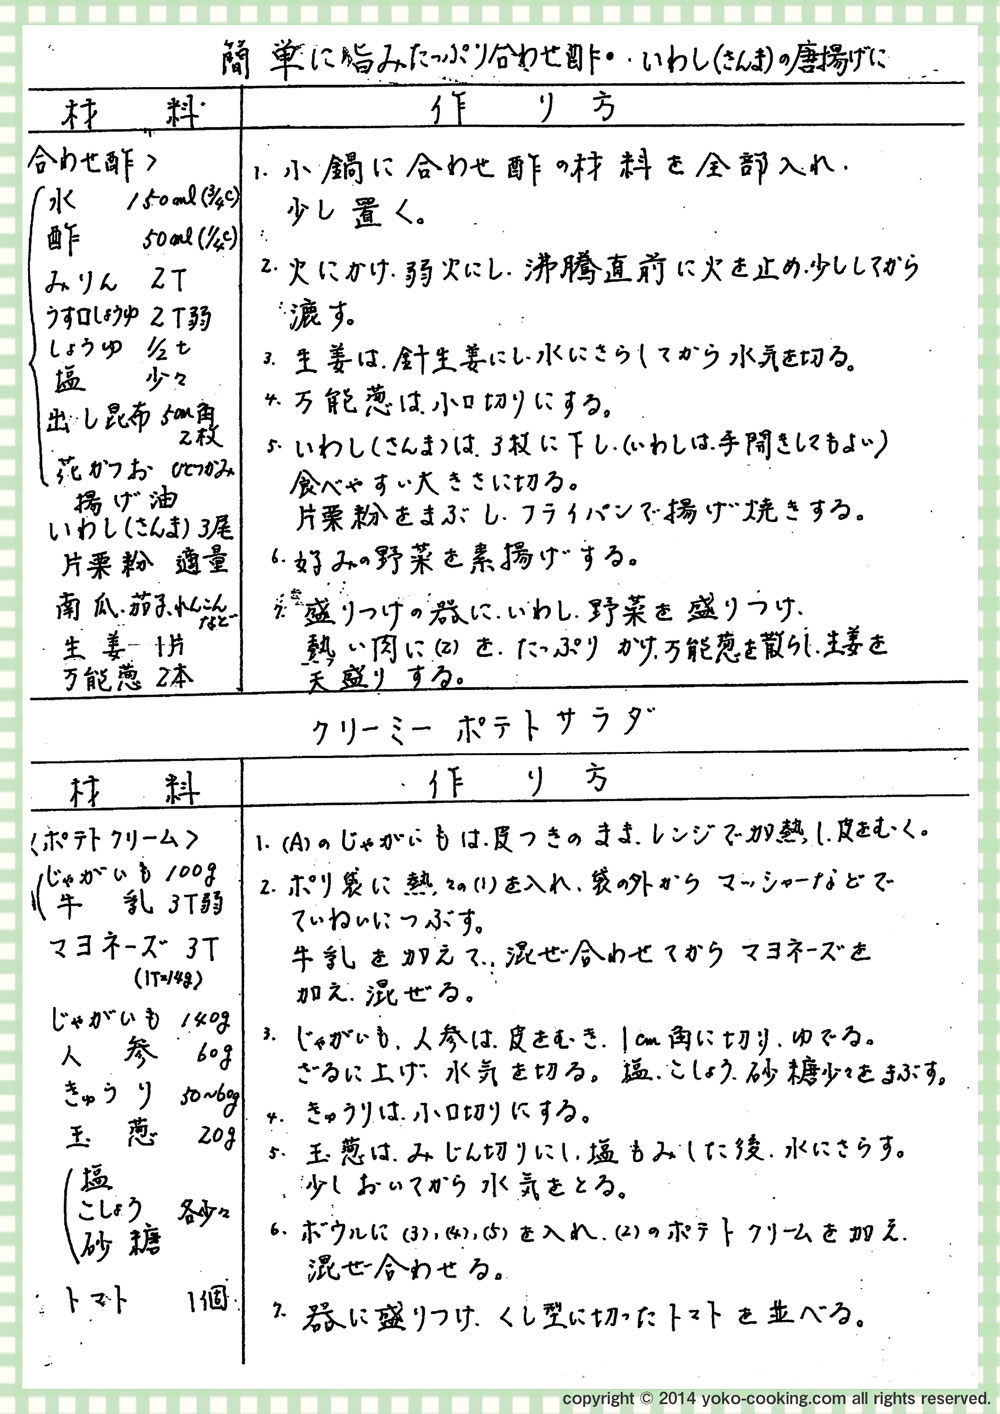 簡単に旨みたっぷり合わせ酢・・いわし(さんま)の唐揚げに
材 料
作 り 方
合わせ酢>
水 150ml(3/4c)
酢 50ml(1/4c)
みりん 2T
うす口しょうゆ 2T弱
しょうゆ 1/2t
塩 少々
出し昆布 5cm角
2枚
花かつお ひとつかみ
揚げ油
いわし(さんま) 3尾
片栗粉 適量
南瓜、茄子、れんこん
など
生姜 1片
万能葱 2本
1. 小鍋に合わせ酢の材料を全部入れ、
少し置く。
2. 火にかけ、弱火にし、沸騰直前に火を止め、少ししてから
漉す。
3. 生姜は、針生姜にし、水にさらしてから水気を切る。
4. 万能葱は、小口切りにする。
5. いわし(さんま)は、3枚に下し、(いわしは、手開きしてもよい)
食べやすい大きさに切る。
片栗粉をまぶし、フライパンで揚げ焼きする。
6. 好みの野菜を素揚げする。
7. 盛りつけの器に、いわし、野菜を盛りつけ、
熱い内に(2)を、たっぷりかけ、万能葱を散らし、生姜を
天盛りする。
クリーミーポテトサラダ
材 料
作 り 方
<ポテトクリーム>
じゃがいも 100g
牛乳 3T弱
マヨネーズ 3T
(1T=14g)
じゃがいも 140g
人参 60g
きゅうり 50~60g
玉葱 20g
塩
こしょう 各少々
砂糖
トマト 1個
1. (A)のじゃがいもは、皮つきのまま、レンジで加熱し、皮をむく。
2. ポリ袋に熱々の(1)を入れ、袋の外からマッシャーなどで
ていねいにつぶす。
牛乳を加えて、混ぜ合わせてからマヨネーズを
加え、混ぜる。
3. じゃがいも、人参は、皮をむき、1cm角に切り、ゆでる。
ざるに上げ、水気を切る。塩、こしょう、砂糖少々をまぶす。
4. きゅうりは、小口切りにする。
5. 玉葱は、みじん切りにし、塩もみした後、水にさらす。
少しおいてから水気をとる。
6. ボウルに(3),(4),(5)を入れ、(2)のポテトクリームを加え、
混ぜ合わせる。
7. 器に盛りつけ、くし型に切ったトマトを並べる。
copyright © 2014 yoko-cooking.com all rights reserved.